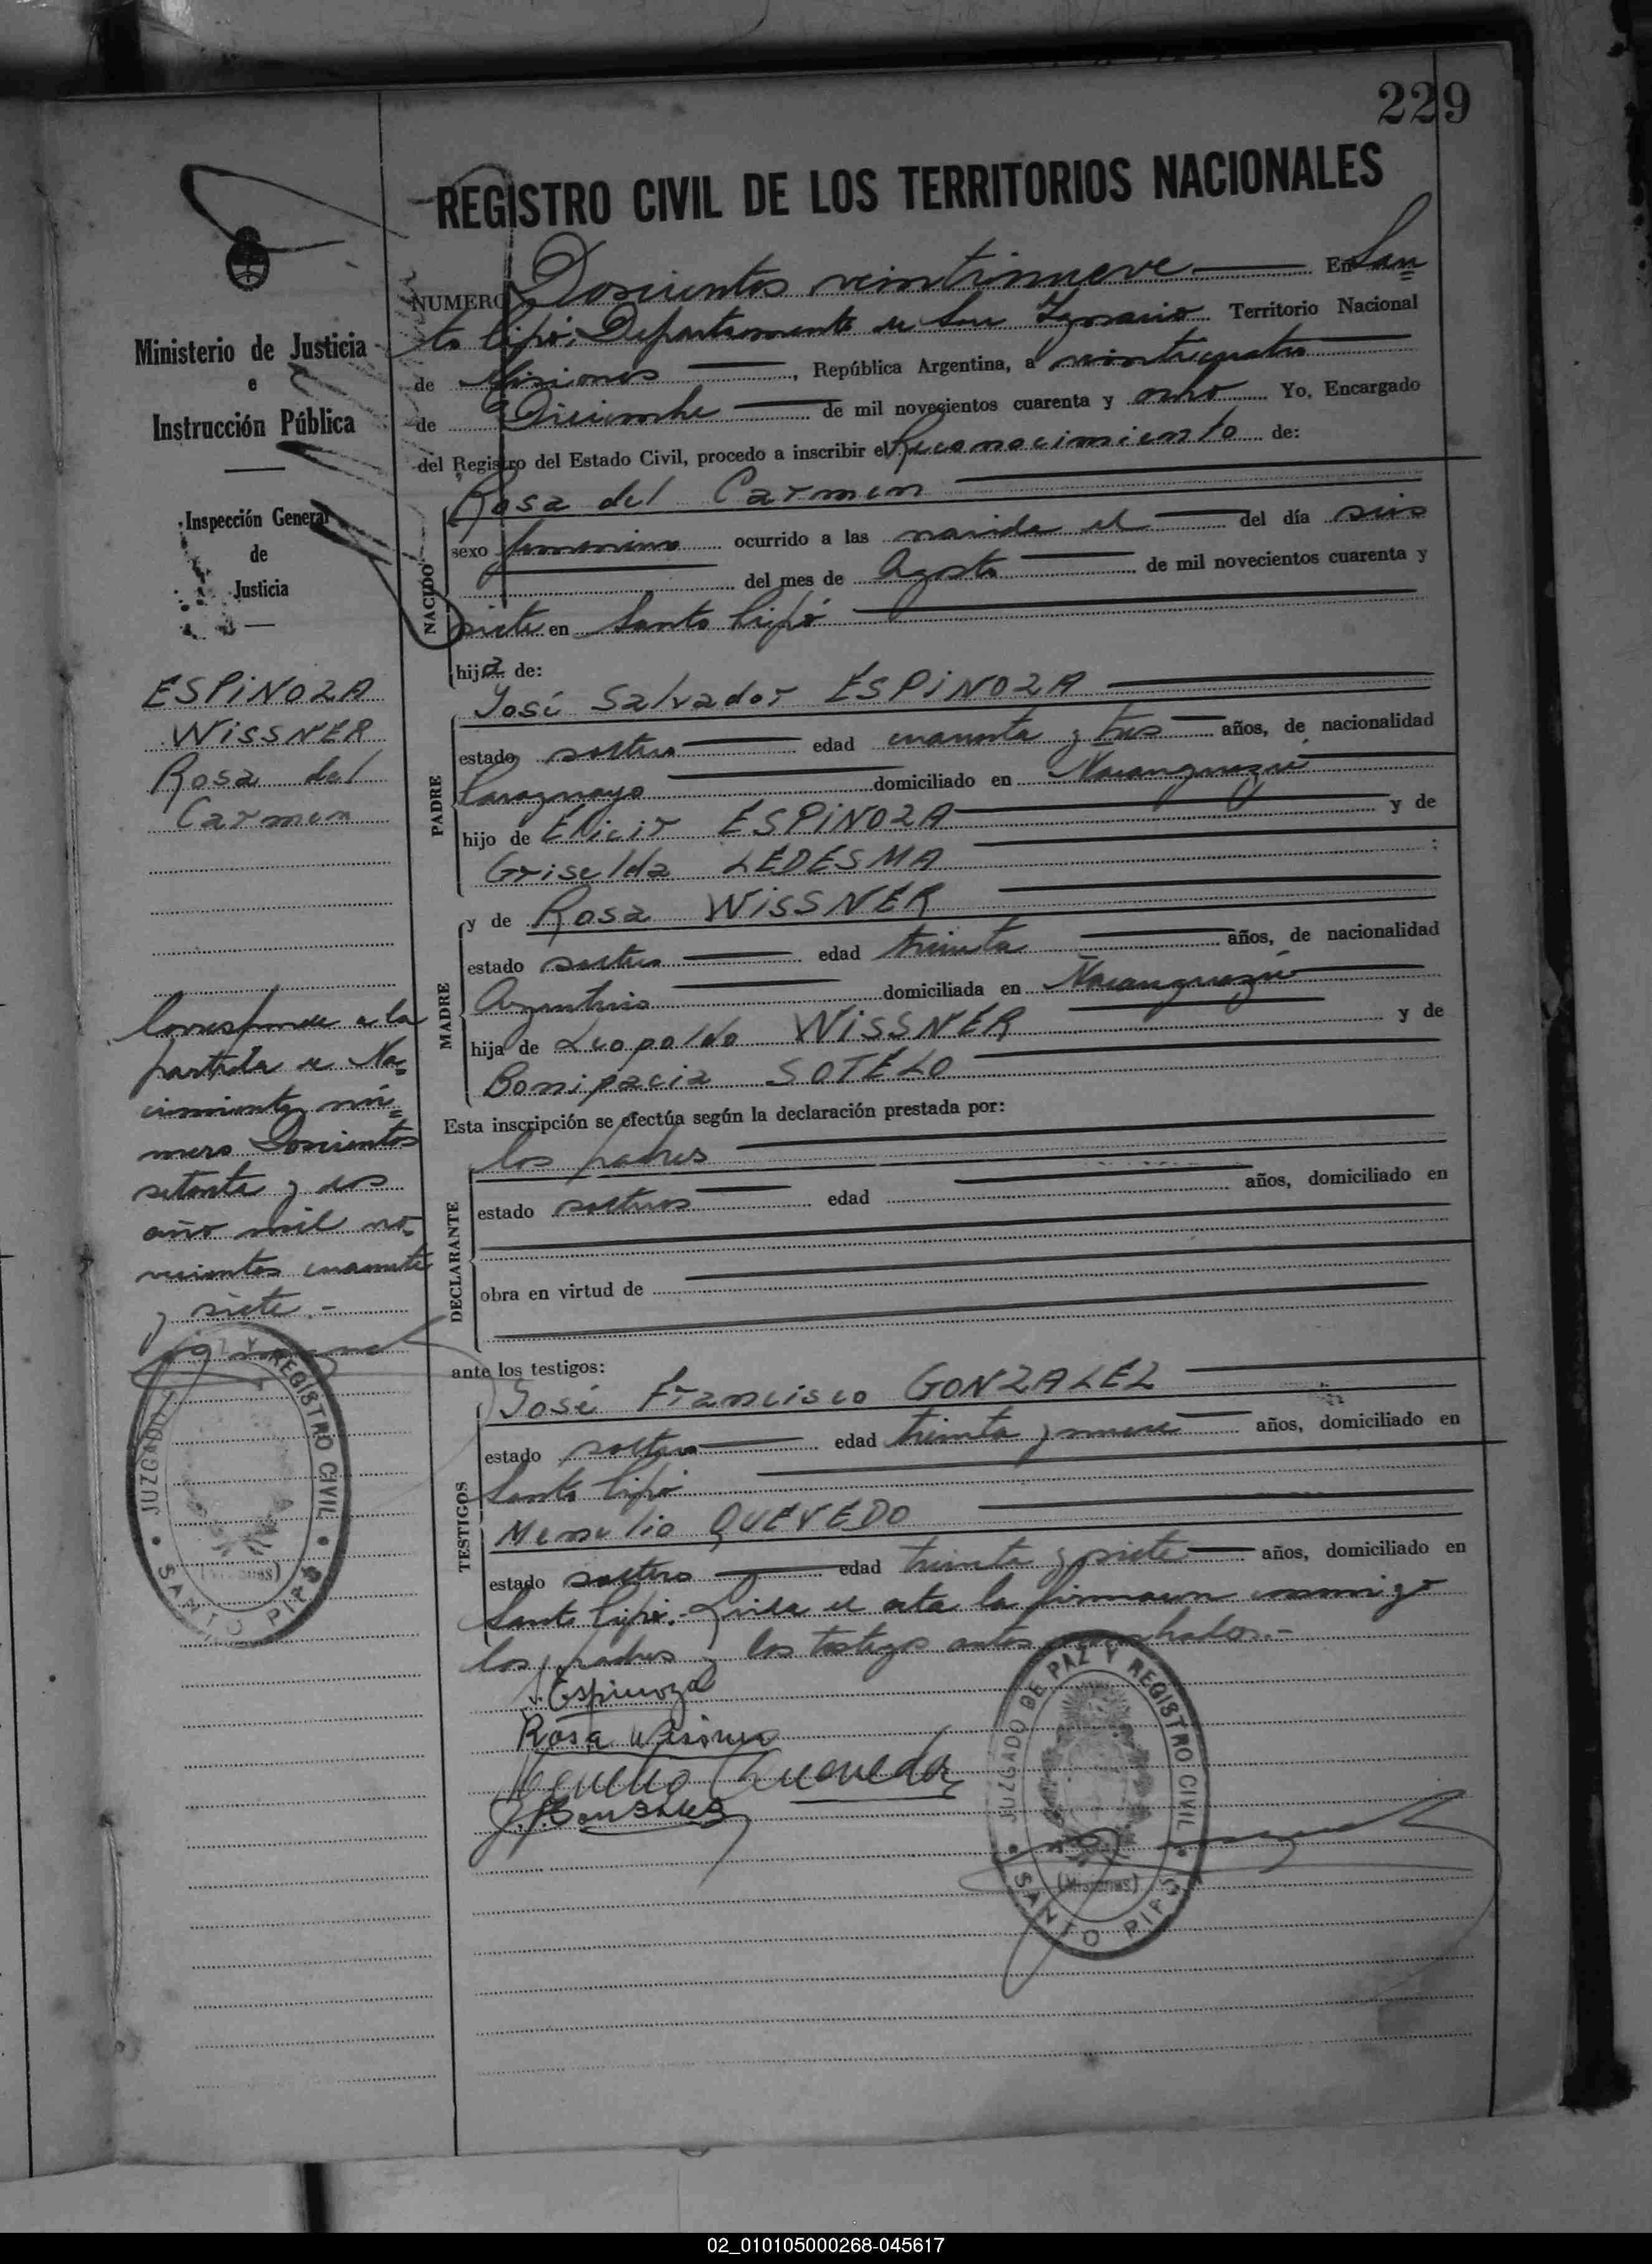 229
REGISTRO CIVIL DE LOS TERRITORIOS NACIONALES
NUMERO Doscientos veintinueve En San=
to Pipó, Departamento de San Ignacio Territorio Nacional
de Misiones, República Argentina, a veinticuatro
de Diciembre de mil novecientos cuarenta y ocho Yo, Encargado
del Registro del Estado Civil, procedo a inscribir el Reconocimiento de:
Rosa del Carmen
NACIDO
sexo femenino ocurrido a las nacida el del día seis
del mes de Agosto de mil novecientos cuarenta y
siete en Santo Pipó
hija de:
PADRE
José Salvador ESPINOZA
estado soltero edad cuarenta y tres años, de nacionalidad
Paraguayo domiciliado en Ñacanguazú
hijo de ESPINOZA y de
Griselda LEDESMA
MADRE
y de Rosa WISSNER
estado soltera edad treinta años, de nacionalidad
Argentina domiciliada en Ñacanguazú
hija de Leopoldo WISSNER y de
Bonifacia SOTELO
Esta inscripción se efectúa según la declaración prestada por:
DECLARANTE
los padres
estado solteros edad años, domiciliado en
obra en virtud de
ante los testigos:
TESTIGOS
José Francisco GONZALEZ
estado soltero edad treinta y nueve años, domiciliado en
Santo Pipó
QUEVEDO
estado soltero edad treinta y siete años, domiciliado en
Santo Pipó. Leída el acta la firmaron conmigo
los padres y los testigos antes
J. Espinoza
Rosa Wisner
Quevedo
J. F. Gonzalez
JUZGADO DE PAZ Y REGISTRO CIVIL
(Misiones)
SANTO PIPÓ
Ministerio de Justicia
e
Instrucción Pública
Inspección General
de
Justicia
ESPINOZA
WISSNER
Rosa del
Carmen
Corresponde a la
partida de Na=
cimiento nú=
mero Doscientos
setenta y dos
año mil no=
vecientos cuarenta
y siete.-
JUZGADO Y REGISTRO CIVIL
SANTO PIPÓ
02_010105000268-045617